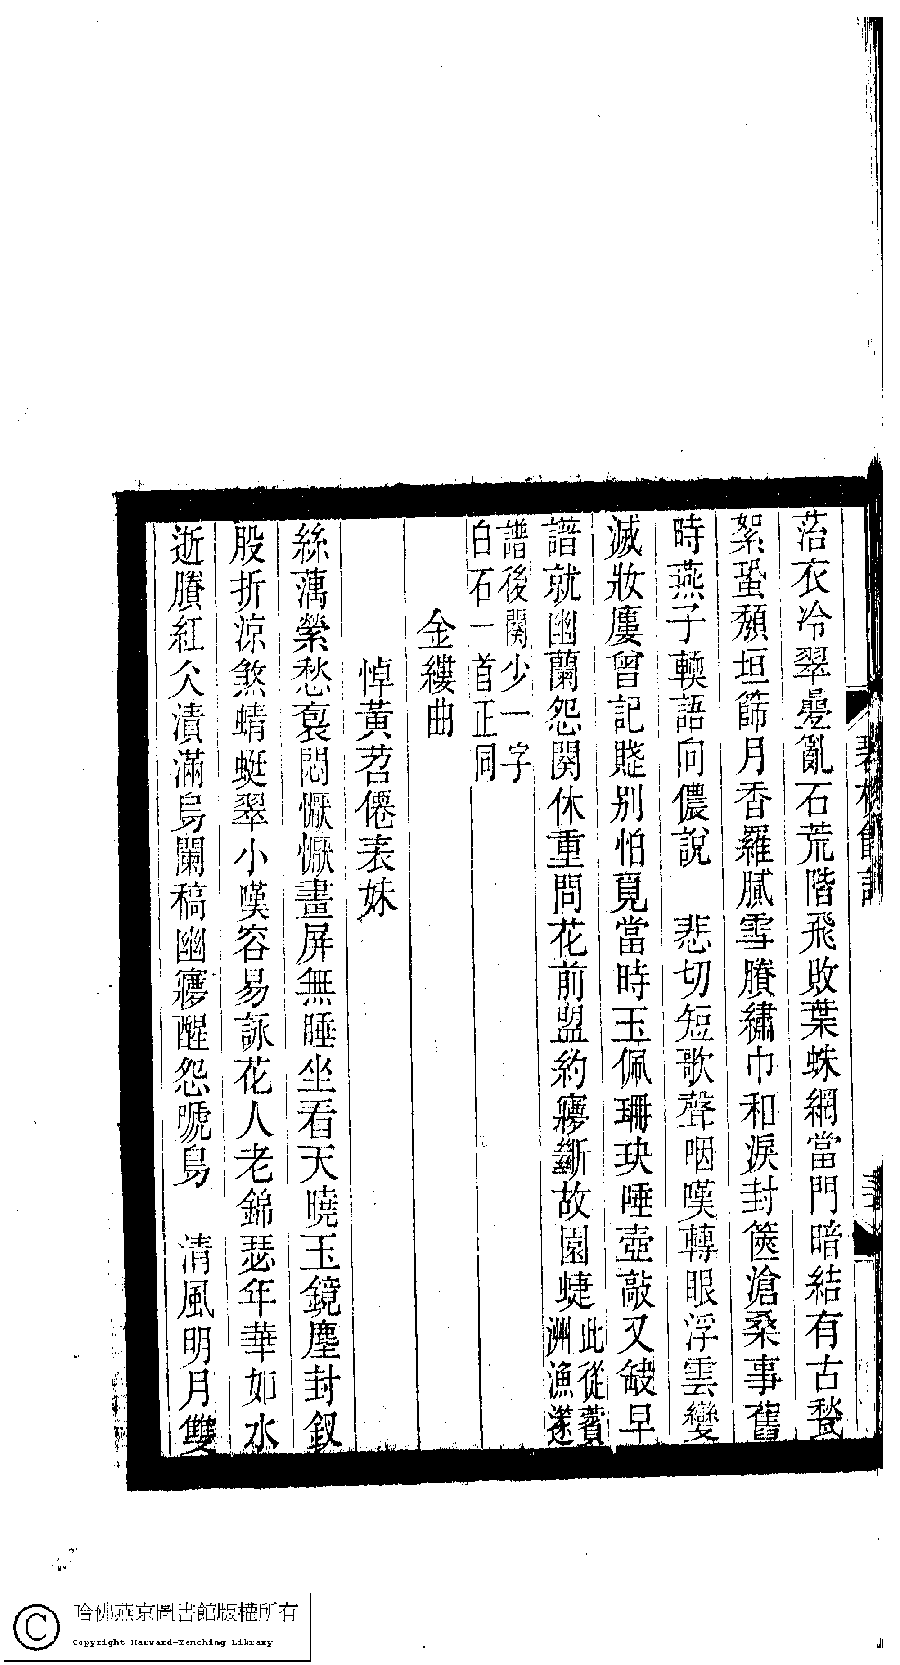 菭衣冷翠疊亂石荒階飛敗葉蛛網當門暗結有古甃
絮蛩頽垣篩月香羅膩雪賸繡巾和淚封篋滄桑事舊
時燕子輭語向儂說　悲切短歌聲咽嘆轉眼浮雲變
滅妝廔曾記賤别怕覓當時玉佩珊玦唾壺敲又缺早
譜就幽蘭怨闋休重問花前盟約㝱斷故園蜨此從蘋
洲漁邃
譜後闋少一字
白石一首正同
金縷曲
悼黃苕僊表妹
絲藕縈愁裊悶懨懨畫屏無睡坐看天曉玉鏡塵封釵
股折涼煞蜻蜓翠小嘆容易詠花人老錦瑟年華如水
逝賸紅仌漬滿烏闌稿幽㝱醒怨嗁鳥　清風明月雙
哈佛燕京圖書館版權所有
Copyright Harvard-Yenching Library